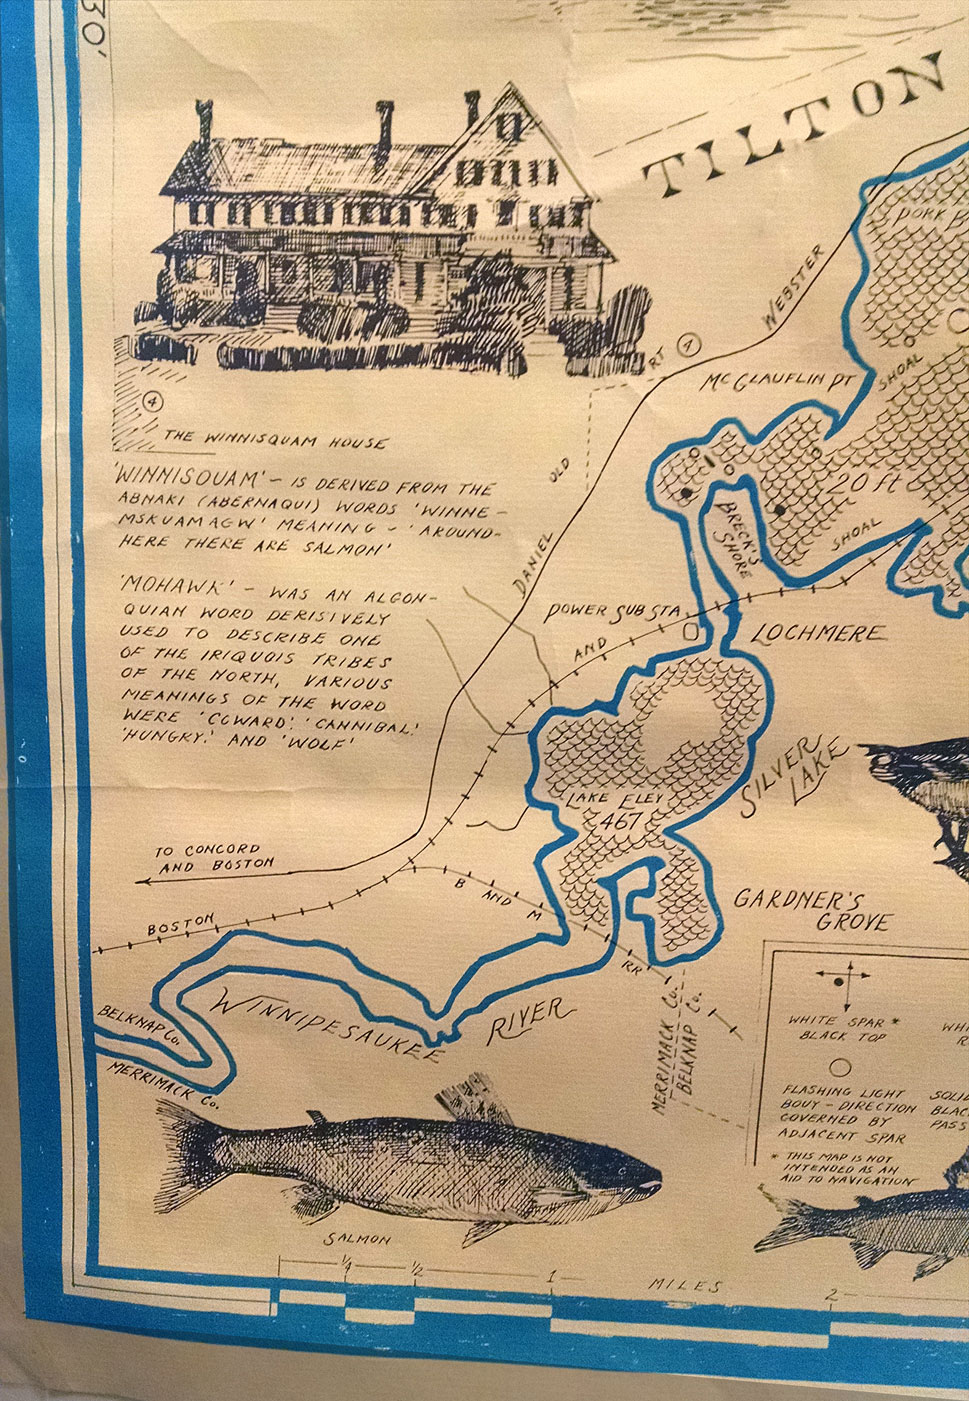 30'
TILTON
WEBSTER
RT 4
OLD
DANIEL
MCGLAUFLIN PT
SHOAL
PORK
20 ft
SHOAL
BRECK'S
SHORE
4
THE WINNISQUAM HOUSE
'WINNISQUAM' - IS DERIVED FROM THE
ABNAKI (ABERNAQUI) WORDS 'WINNE-
MSKUAMAGW' MEANING - 'AROUND-
HERE THERE ARE SALMON'
'MOHAWK' - WAS AN ALGON-
QUIAN WORD DERISIVELY
USED TO DESCRIBE ONE
OF THE IRIQUOIS TRIBES
OF THE NORTH, VARIOUS
MEANINGS OF THE WORD
WERE 'COWARD', 'CANNIBAL',
'HUNGRY', AND 'WOLF'
POWER SUB STA.
AND
LOCHMERE
SILVER
LAKE
LAKE ELEV
467
TO CONCORD
AND BOSTON
BOSTON
B AND M
RR
GARDNER'S
GROVE
WINNIPESAUKEE RIVER
BELKNAP CO.
MERRIMACK CO.
MERRIMACK CO.
BELKNAP CO.
WHITE SPAR *
BLACK TOP
FLASHING LIGHT
BOUY - DIRECTION
GOVERNED BY
ADJACENT SPAR
* THIS MAP IS NOT
INTENDED AS AN
AID TO NAVIGATION
WHI
R
SOLID
BLAC
PASS
SALMON
1/4 1/2 1 MILES 2